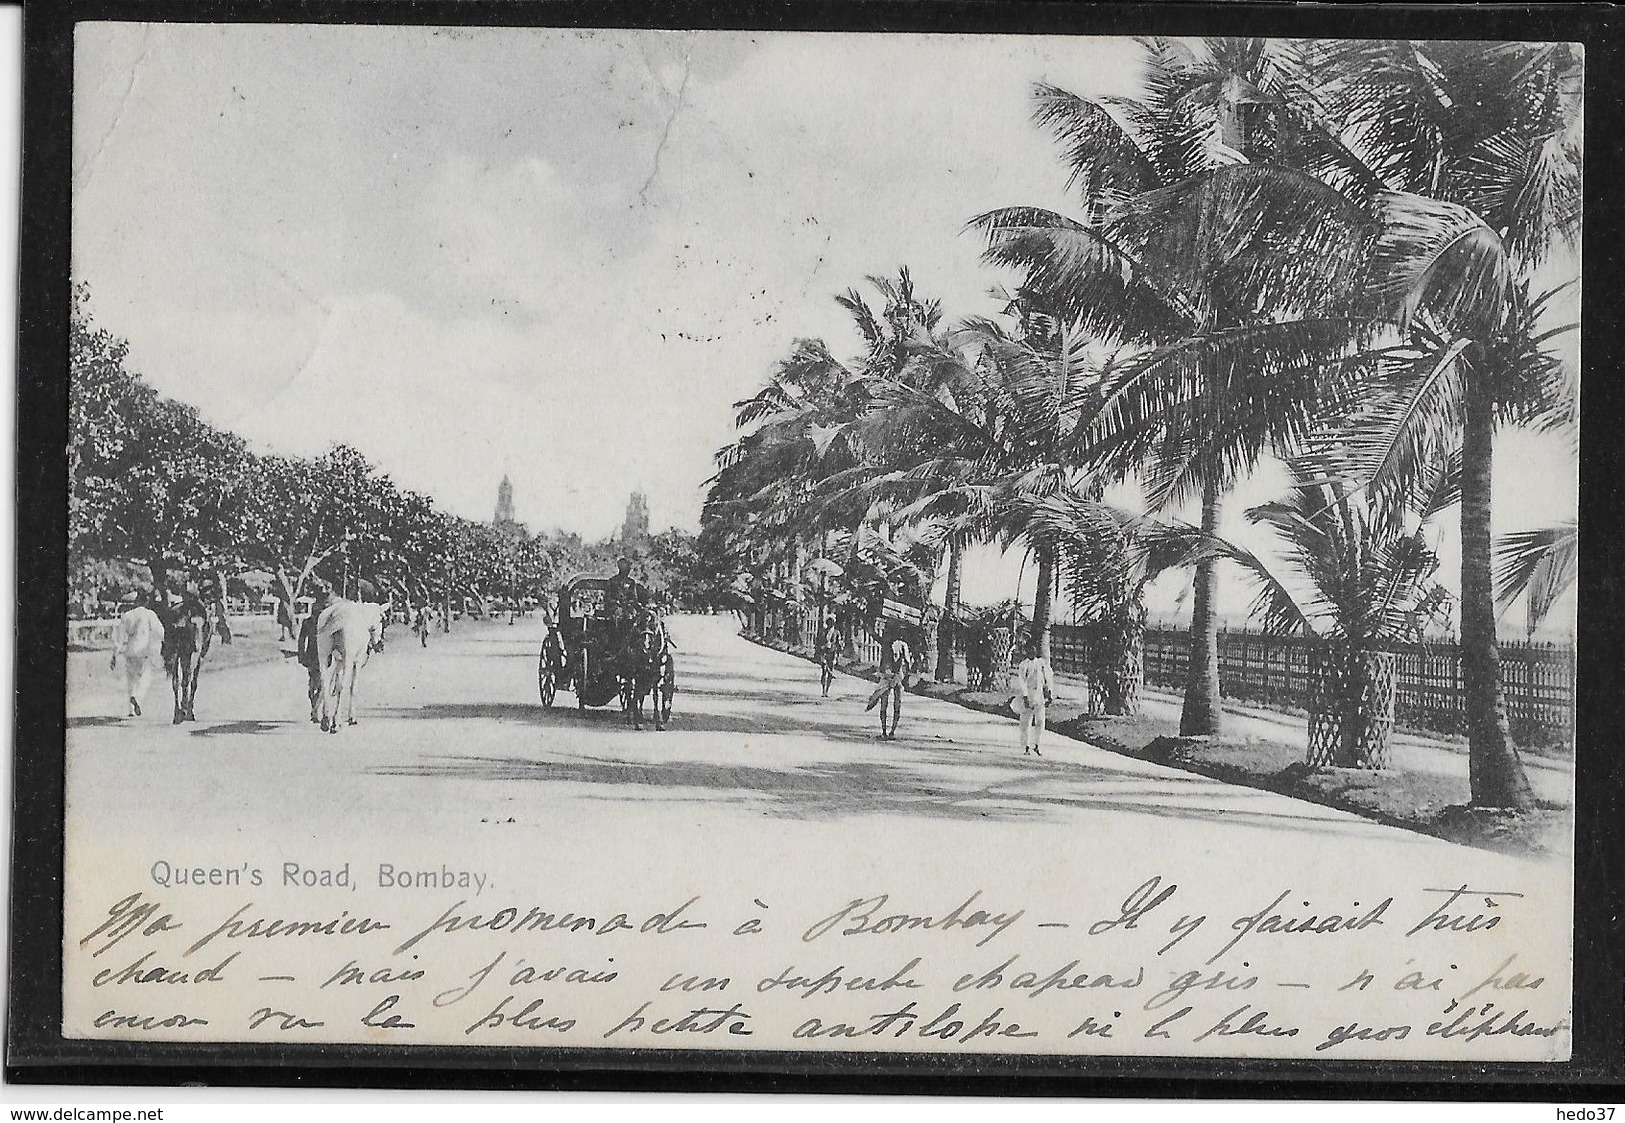 Queen's Road, Bombay.
Ma première promenade à Bombay – Il y faisait très
chaud – mais j'avais un superbe chapeau gris – n'ai pas
encore vu la plus petite antilope ni le plus gros éléphant
www.delcampe.net
hedo37